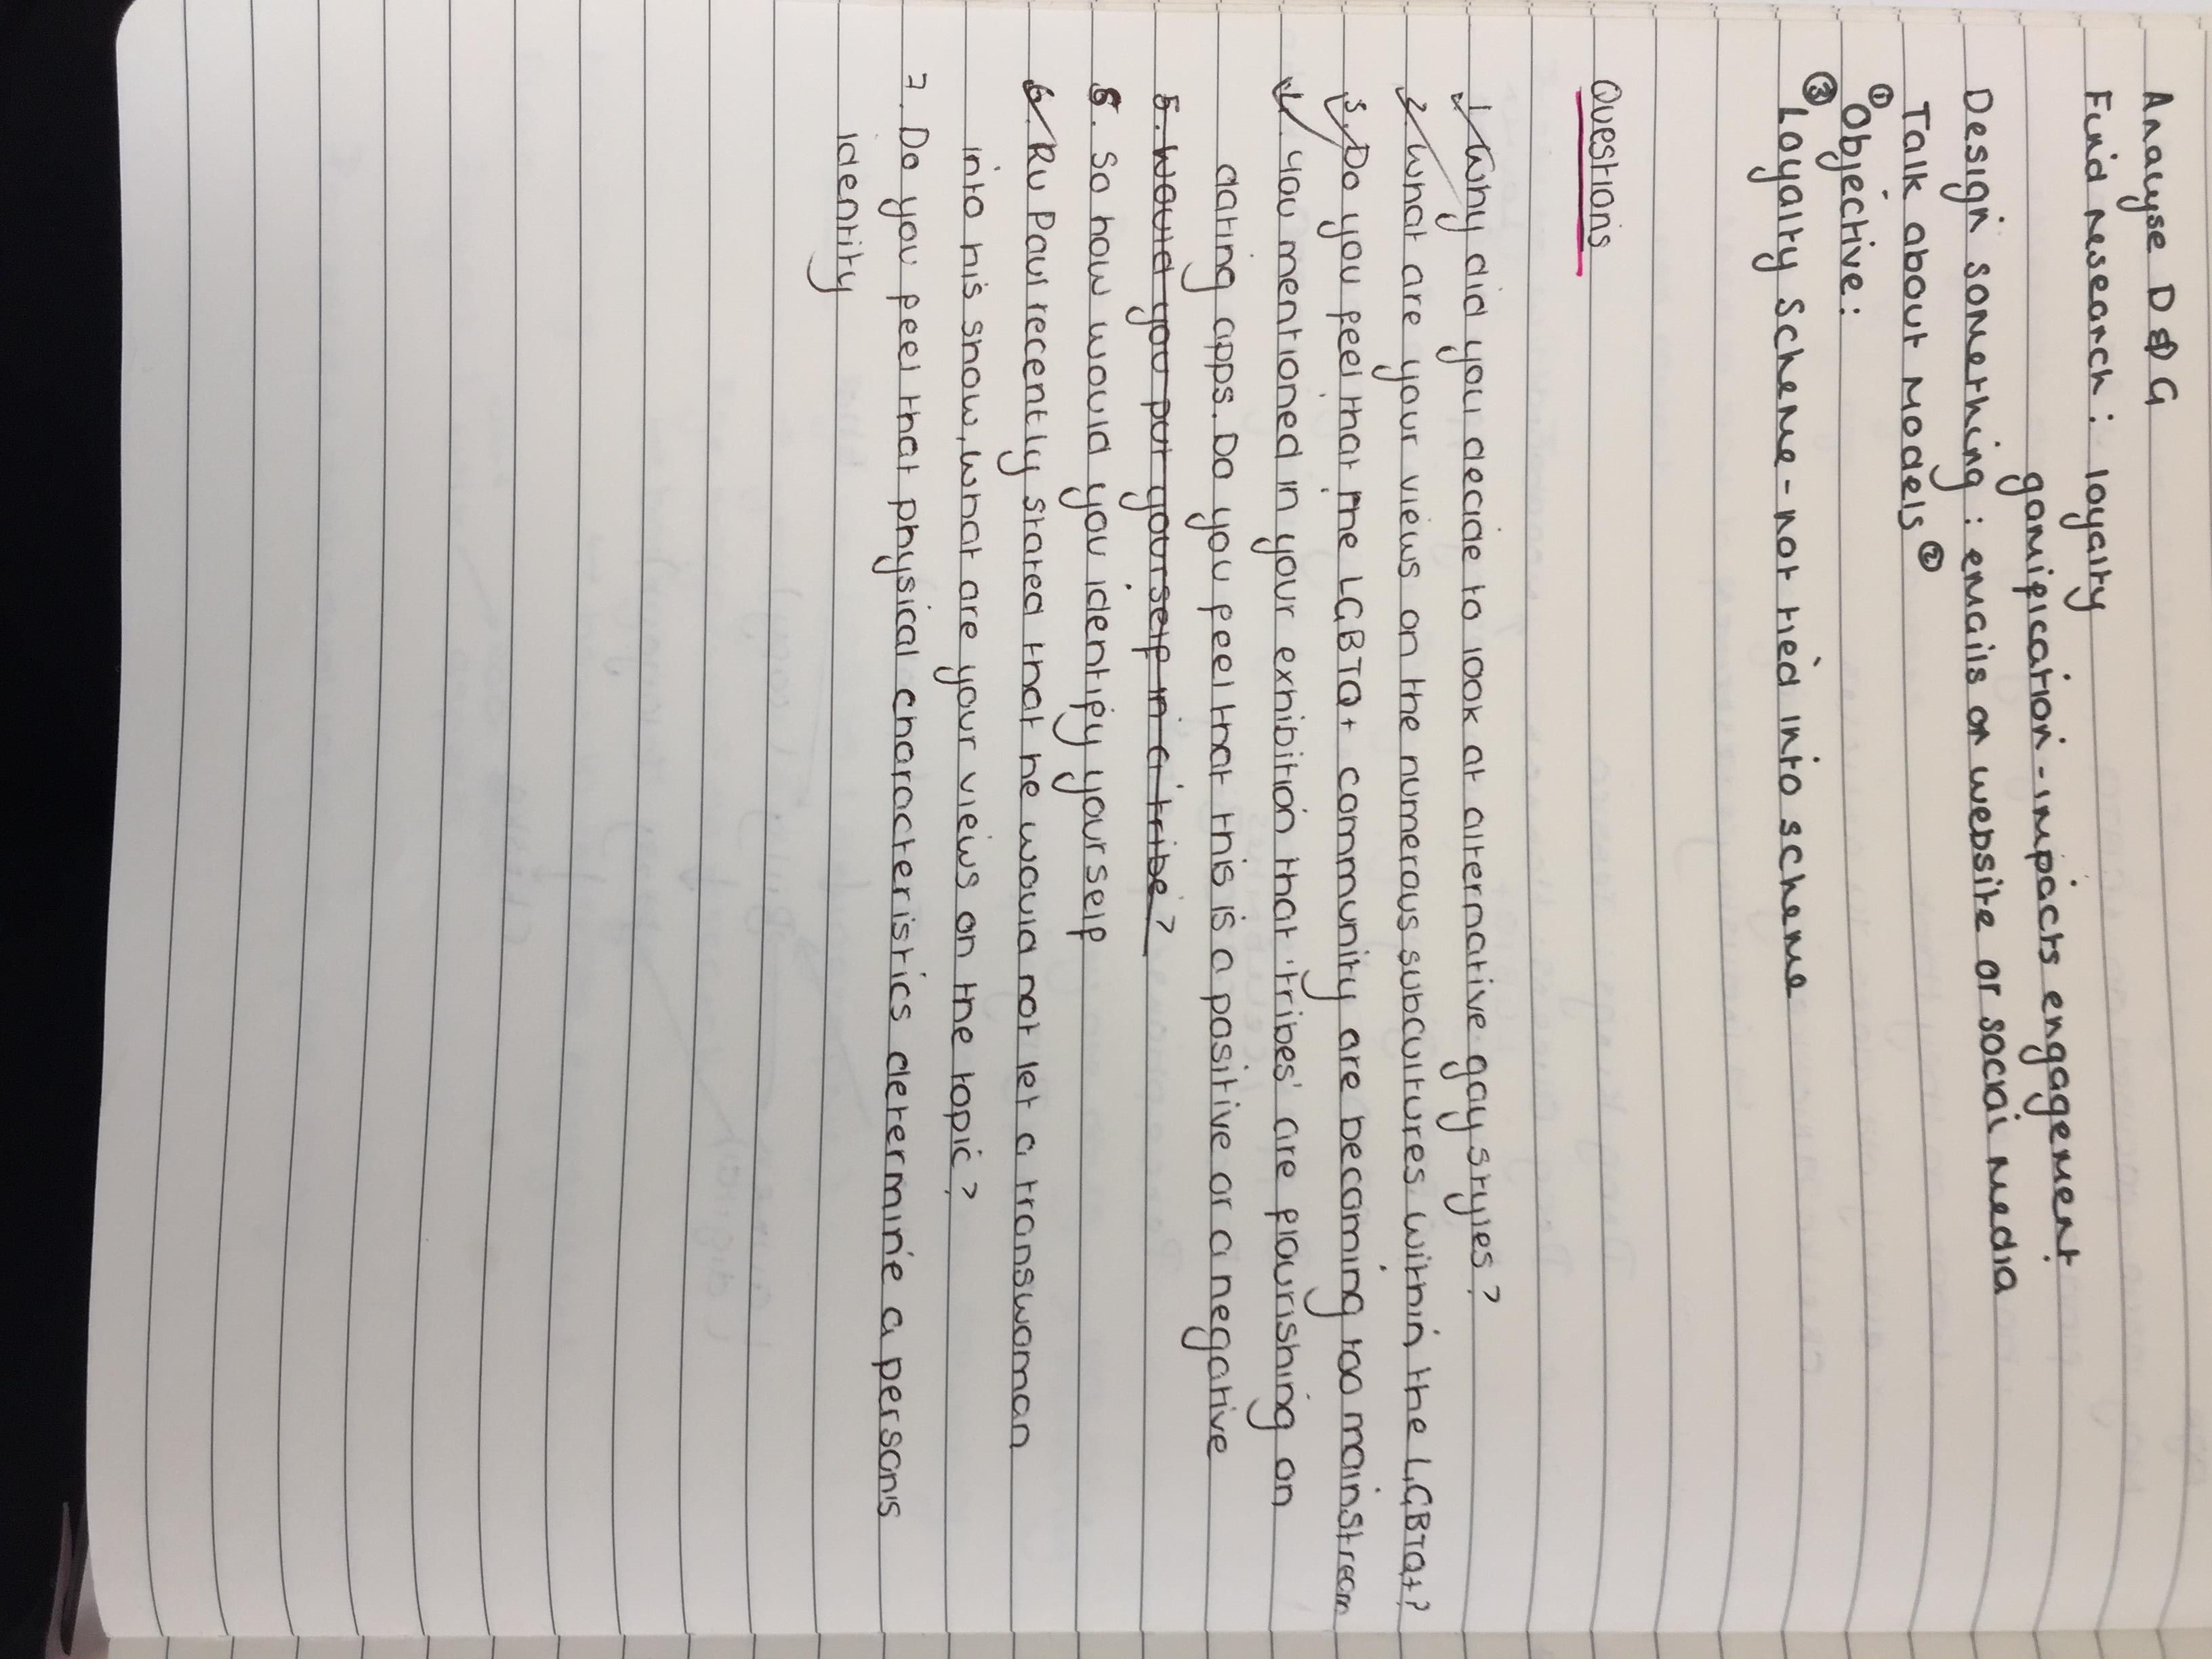 Analyse D&G
Find research: loyalty
gamification - impacts engagement
Design something: emails or website or social media
Talk about Models ②
① Objective:
③ Loyalty Scheme - not tied into scheme
Questions
1. Why did you decide to look at alternative gay styles?
2. What are your views on the numerous subcultures within the LGBTQ+?
3. Do you feel that the LGBTQ+ community are becoming too mainstream
4. You mentioned in your exhibition that 'tribes' are flourishing on
dating apps. Do you feel that this is a positive or a negative
5. Would you put yourself in a 'tribe'?
5. So how would you identify yourself
6. Ru Paul recently stated that he would not let a transwoman
into his show, what are your views on the topic?
7. Do you feel that physical characteristics determine a person's
identity